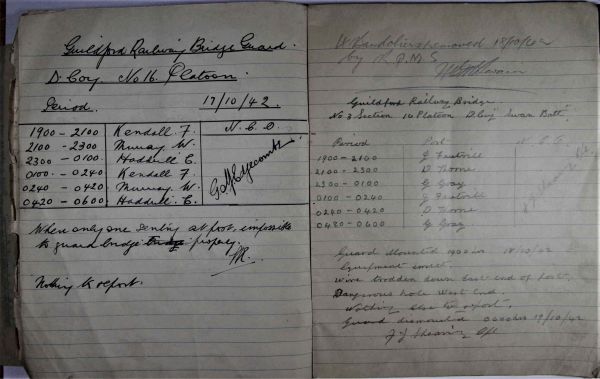 Guildford Railway Bridge Guard.
D. Coy. No 16. Platoon.
Period. 17/10/42.
1900 - 2100 Kendell F. N.C.O.
2100 - 2300 Murray W.
2300 - 0100. Haddrell C.
0100. - 0240 Kendell F.
0240 - 0420 Murray W.
0420 - 0600 Haddrell C.
When only one sentry at post, impossible
to guard bridge properly.
Nothing to report.
removed 18/10/42
by
Guildford Railway Bridge
No 3 Section 16 Platoon D. Coy Batt
Period Post N.C.O.
1900 - 2100
2100 - 2300 D Toone
2300 - 0100 G Gray
0100 - 0240
0240 - 0420 D Toone
0420 - 0600 G Gray
Guard Mounted 1900 hrs 18/10/42
Equipment correct.
Wire trodden down East End of post.
Dangerous hole West End.
Nothing else to report.
Guard dismounted 0600 hrs 19/10/42
Cpl